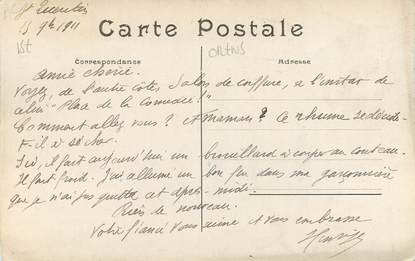 St Quentin
15 9bre 1911
Carte Postale
Correspondance
Adresse
Amie chérie.
Voyez, de l'autre côté, Salon de coiffure, à l'instar de
celui "Place de la Comédie!"
Comment allez vous? et Maman? Ce rhume se décide-
t-il à
Ici, il fait aujourd'hui un brouillard à couper au couteau.
Il fait froid. J'ai allumé un bon feu dans ma garçonnière
que je n'ai pas quitté cet après-midi.
Rien de nouveau.
Votre fiancé vous aime et vous embrasse